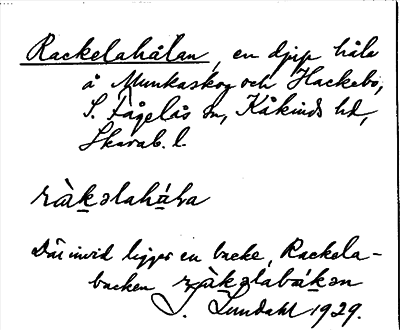 Rackelahålan, en djup håla
å Munkaskog och Hackebo,
S. Fågelås sn, Kåkinds hd,
Skarab. l.
ràkəlahåla
Där invid ligger en backe, Rackela-
backen ràkəlabákən
J. Lundahl 1929.